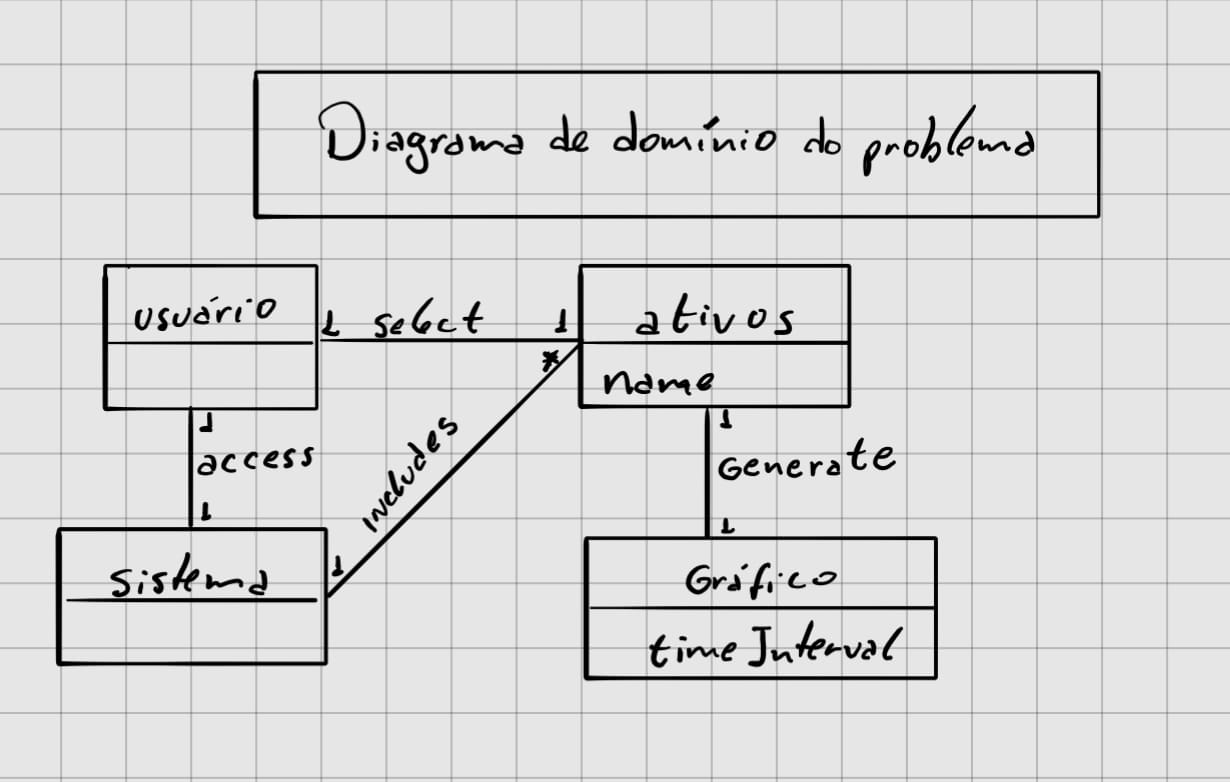 Diagrama de domínio do problema
usuário
1 select 1
ativos
*
name
1
access
1
includes
1
Generate
1
1
sistema
Gráfico
timeInterval